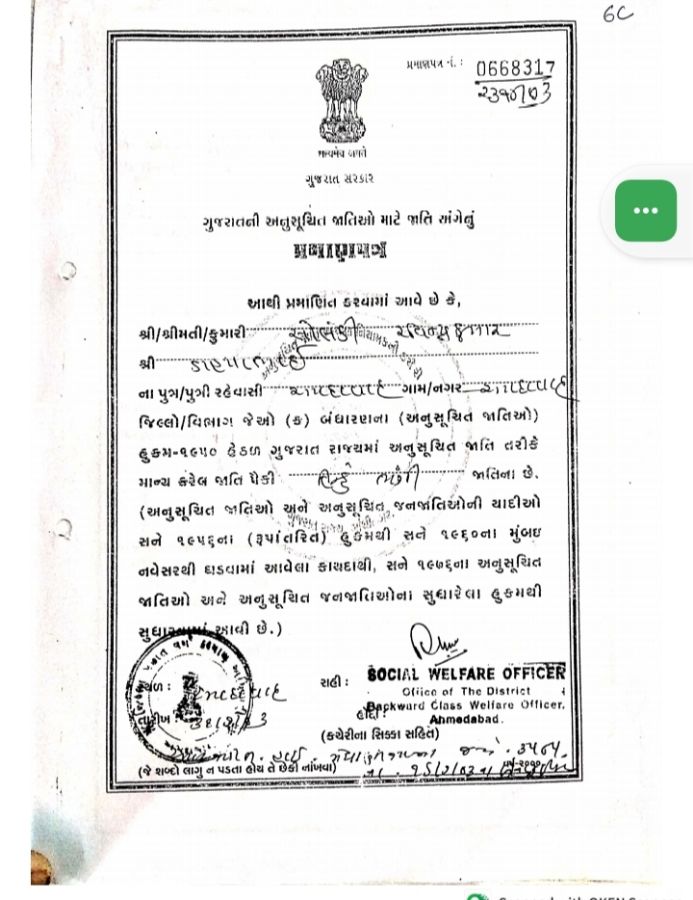 6C
પ્રમાણપત્ર નં. : 0668317
માન્યમેવ જયતે
ગુજરાત સરકાર
ગુજરાતની અનુસૂચિત જાતિઓ માટે જાતિ અંગેનું
પ્રમાણપત્ર
આથી પ્રમાણિત કરવામાં આવે છે કે,
શ્રી/શ્રીમતી/કુમારી સોલંકી
શ્રી
ના પુત્ર/પુત્રી રહેવાસી અમદાવાદ ગામ/નગર અમદાવાદ
જિલ્લો/વિભાગ જેઓ (ક) બંધારણના (અનુસૂચિત જાતિઓ)
હુકમ-૧૯૫૦ હેઠળ ગુજરાત રાજ્યમાં અનુસૂચિત જાતિ તરીકે
માન્ય કરેલ જાતિ પૈકી હિન્દુ જાતિના છે.
(અનુસૂચિત જાતિઓ અને અનુસૂચિત જનજાતિઓની યાદીઓ
સને ૧૯૫૬ના (રૂપાંતરિત) હુકમથી સને ૧૯૬૦ના મુંબઇ
નવેસરથી ઘડવામાં આવેલા કાયદાથી, સને ૧૯૭૬ના અનુસૂચિત
જાતિઓ અને અનુસૂચિત જનજાતિઓના સુધારેલા હુકમથી
સુધારવામાં આવી છે.)
સ્થળ : અમદાવાદ
તારીખ
સહી :
SOCIAL WELFARE OFFICER
Office of The District
Backward Class Welfare Officer,
હોદ્દો :
Ahmedabad.
(કચેરીના સિક્કા સહિત)
(જે શબ્દો લાગુ ન પડતા હોય તે છેકી નાંખવા)